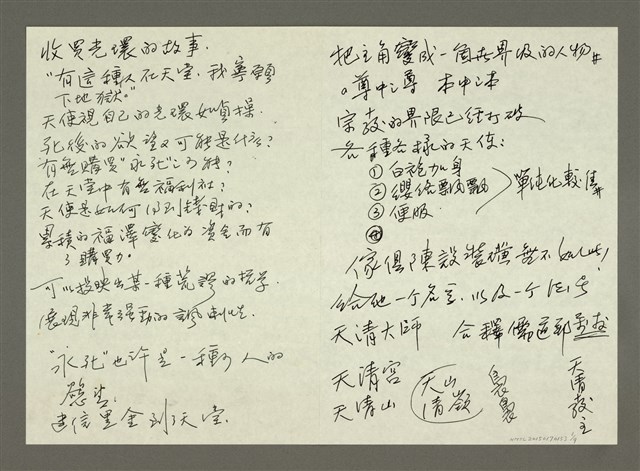 收買光環的故事.
"有這種人在天堂，我寧願
下地獄。"
天使視自己的光環如貞操.
死後的欲望又可能是什麼?
有無購買"永死"的可能?
在天堂中有無福利社?
天使是如何得到錢財的?
累積的福澤變化為資金而有
了購買力.
可以投映出某一種荒謬的哲學.
展現非常強勁的諷刺性.
"永死"也許是一種別人的
建信黑金到天堂.
把主角變成一個世界級的人物
尊中之尊 本中之本
宗教的界限已經打破
各種各樣的天使:
① 白袍加身
② 纓絡飄飄
③ 便服
單純化較佳
傢俱陳設裝潢無不如此!
給他一个名字，以及一个
天清大師 合釋儒道耶
天清宮
天清山
天山
清嶺
裊裊
天清教主